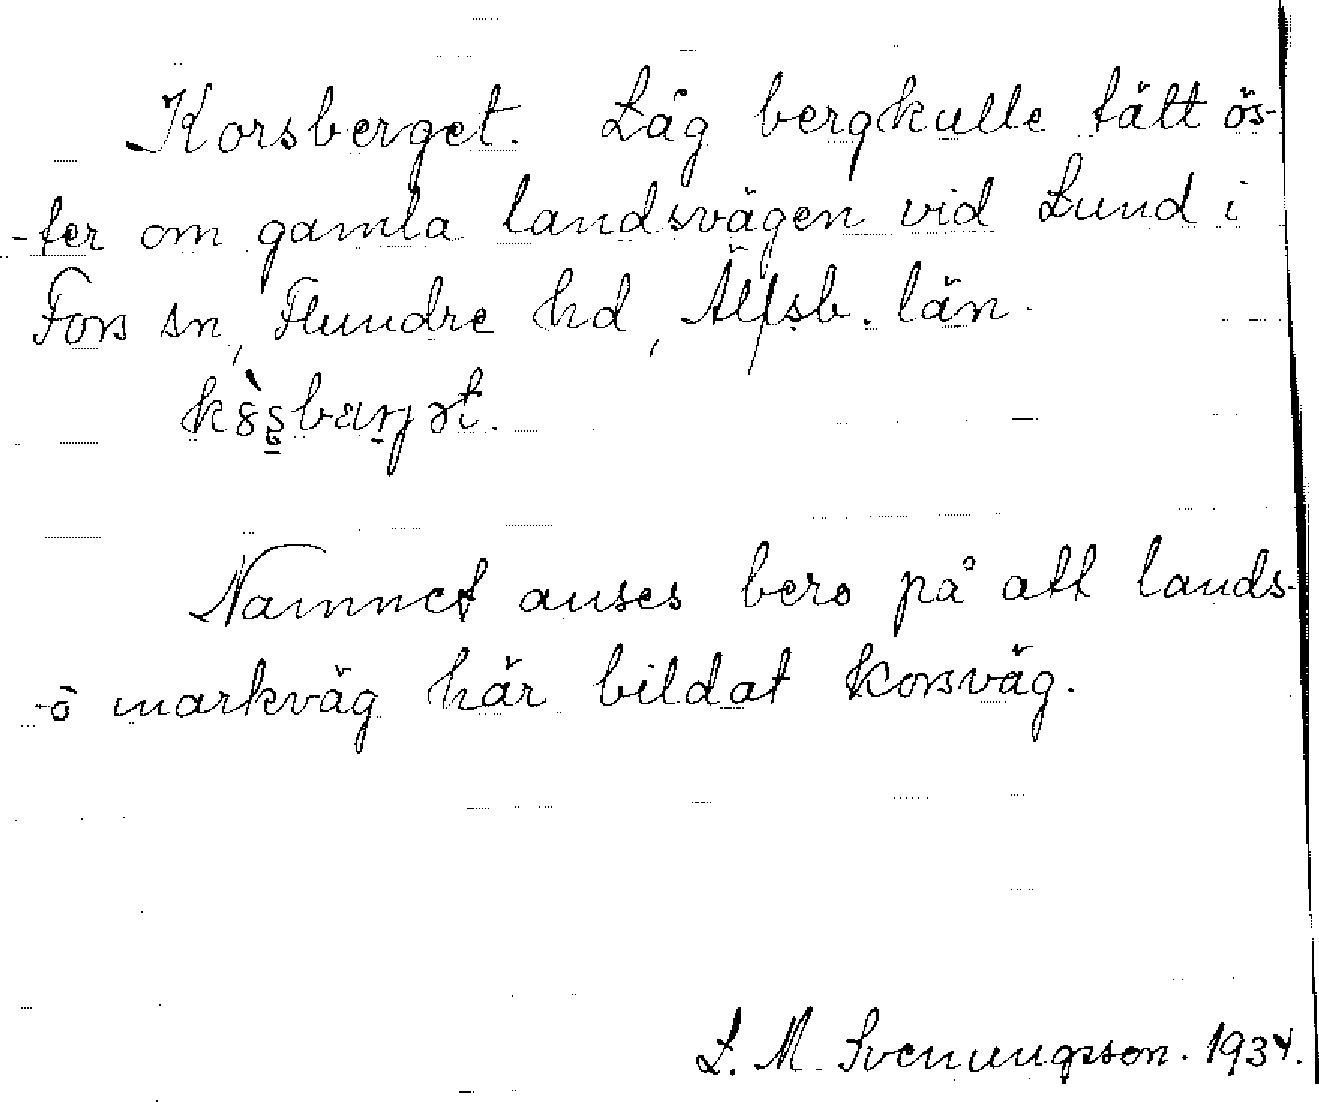 Korsberget. Låg bergkulle tätt ös-
-ter om gamla landsvägen vid Lund i
Fors sn, Flundre hd, Älfsb. län.
Namnet anses bero på att lands-
-o markväg här bildat korsväg.
L. M. Svenungsson. 1934.